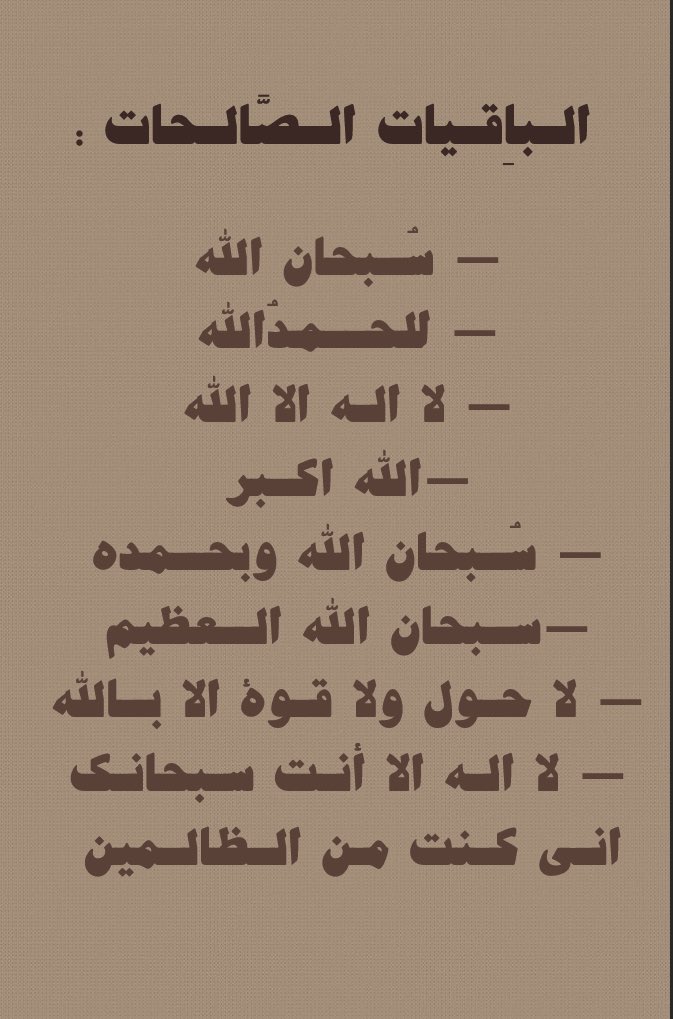 الـباقـيات الـصَّالـحات :
— سُـبحان الله
— للحـمدُالله
— لا الـه الا الله
—الله اكـبر
— سُـبحان الله وبحـمده
—سـبحان الله الـعظيم
— لا حـول ولا قـوة الا بـالله
— لا الـه الا أنـت سـبحانـک
انـى كـنت مـن الـظالـمين